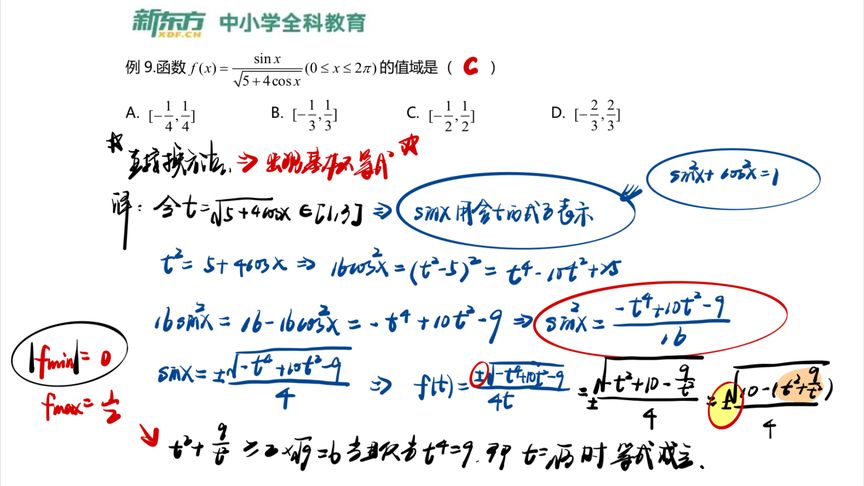 新东方 XDF.CN 中小学全科教育
例 9.函数 f(x)= sin x / √(5+4cos x) (0≤x≤2π) 的值域是 ( C )
A. [-1/4, 1/4] B. [-1/3, 1/3] C. [-1/2, 1/2] D. [-2/3, 2/3]
直接换元法, ⇒ 出现基本不等式
sin²x+cos²x=1
解: 令 t=√(5+4cosx) ∈[1,3] ⇒ sinx 用含 t 的式子表示
t²=5+4cosx ⇒ 16cos²x=(t²-5)²=t⁴-10t²+25
16sin²x=16-16cos²x=-t⁴+10t²-9 ⇒ sin²x=(-t⁴+10t²-9)/16
|fmin|=0
sinx=±√(-t⁴+10t²-9)/4 ⇒ f(t)=±√(-t⁴+10t²-9)/4t =±√(-t²+10-9/t²)/4 =±√(10-(t²+9/t²))/4
fmax=1/2
t²+9/t² ≥2×√9=6 当且仅当 t⁴=9, 即 t=√3 时 等式成立.